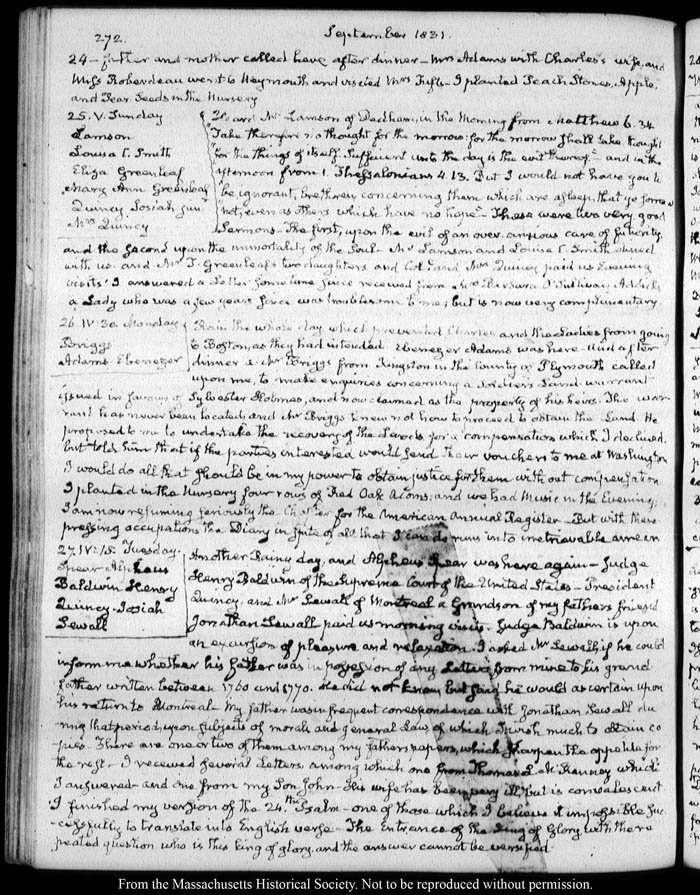 272.
September 1831.
24 — father and mother called here after dinner — Mrs Adams with Charles's wife, and
Miss Roberdeau went to Weymouth and visited Mrs Tufts. I planted Peach Stones, Apple,
and Pear Seeds in the Nursery
25. V. Sunday
Lamson
Louisa C. Smith
Eliza Greenleaf
Mary Ann Greenleaf
Quincy. Josiah junr
Mrs Quincy
Heard Mr Lamson of Dedham, in the Morning from Matthew 6. 34
Take therefore no thought for the morrow: for the morrow shall take thought
for the things of itself. Sufficient unto the day is the evil thereof — and in the
afternoon from 1. Thessalonians 4. 13. But I would not have you to
be ignorant, brethren, concerning them which are asleep, that ye sorrow
not, even as others which have no hope — These were two very good
Sermons — The first, upon the evil of an over-anxious care of futurity,
and the second upon the immortality of the Soul. Mr Lamson and Louisa C. Smith dined
with us. and Mr T. Greenleaf's two daughters and Col. and Mrs Quincy paid us Evening
visits. I answered a Letter some time since received from Mrs Barbara O'Sullivan Addicks
a Lady who was a few years since was troublesome to me; but is now very complimentary.
26. IV. 30. Monday
Briggs
Adams. Ebenezer
Rain the whole day, which prevented Charles and the Ladies from going
to Boston, as they had intended Ebenezer Adams was here. And after
dinner a Mr Briggs from Kingston in the County of Plymouth called
upon me, to make enquiries concerning a Soldier's Land warrant
issued in favour of Sylvester Holmes, and now claimed as the property of his heirs. The war-
rant has never been located, and Mr Briggs knew not how to proceed to obtain the Land. He
proposed to me to undertake the recovery of the Lands for a compensation which I declined.
but told him that if the parties interested would send their vouchers to me at Washington
I would do all that should be in my power to obtain justice for them without compensation
I planted in the Nursery four rows of Red Oak Acorns; and we had Music in the Evening.
I am now resuming seriously the Chapter for the American Annual Register — But with these
pressing occupations the Diary in spite of all that I can do runs into irretrievable arrear
27. IV: 15. Tuesday.
Spear Alpheus
Baldwin Henry
Quincy. Josiah
Sewall
Another Rainy day, and Alpheus Spear was here again — Judge
Henry Baldwin of the Supreme Court of the United States — President
Quincy, and Mr Sewall of Montreal a Grandson of my father's friend
Jonathan Sewall paid us morning visits. Judge Baldwin is upon
an excursion of pleasure and relaxation. I asked Mr Sewall, if he could
inform me whether his father was in possession of any Letters from mine to his grand-
father written between 1760 and 1770. He did not know, but said he would ascertain upon
his return to Montreal — My father was in frequent correspondence with Jonathan Sewall du-
ring that period, upon subjects of morals and general Law, of which I wish much to obtain co-
pies. There are one or two of them among my father's papers, which sharpen the appetite for
the rest — I received several Letters, among which one from Thomas L. McKenney which
I answered — and one from my Son John — His wife has been very ill, but is convalescent
I finished my version of the 24.th Psalm — one of those which I believe it impossible suc-
cessfully to translate into English verse — The Entrance of the King of Glory, with the re-
peated question who is this king of glory, and the answer cannot be versified
From the Massachusetts Historical Society. Not to be reproduced without permission.